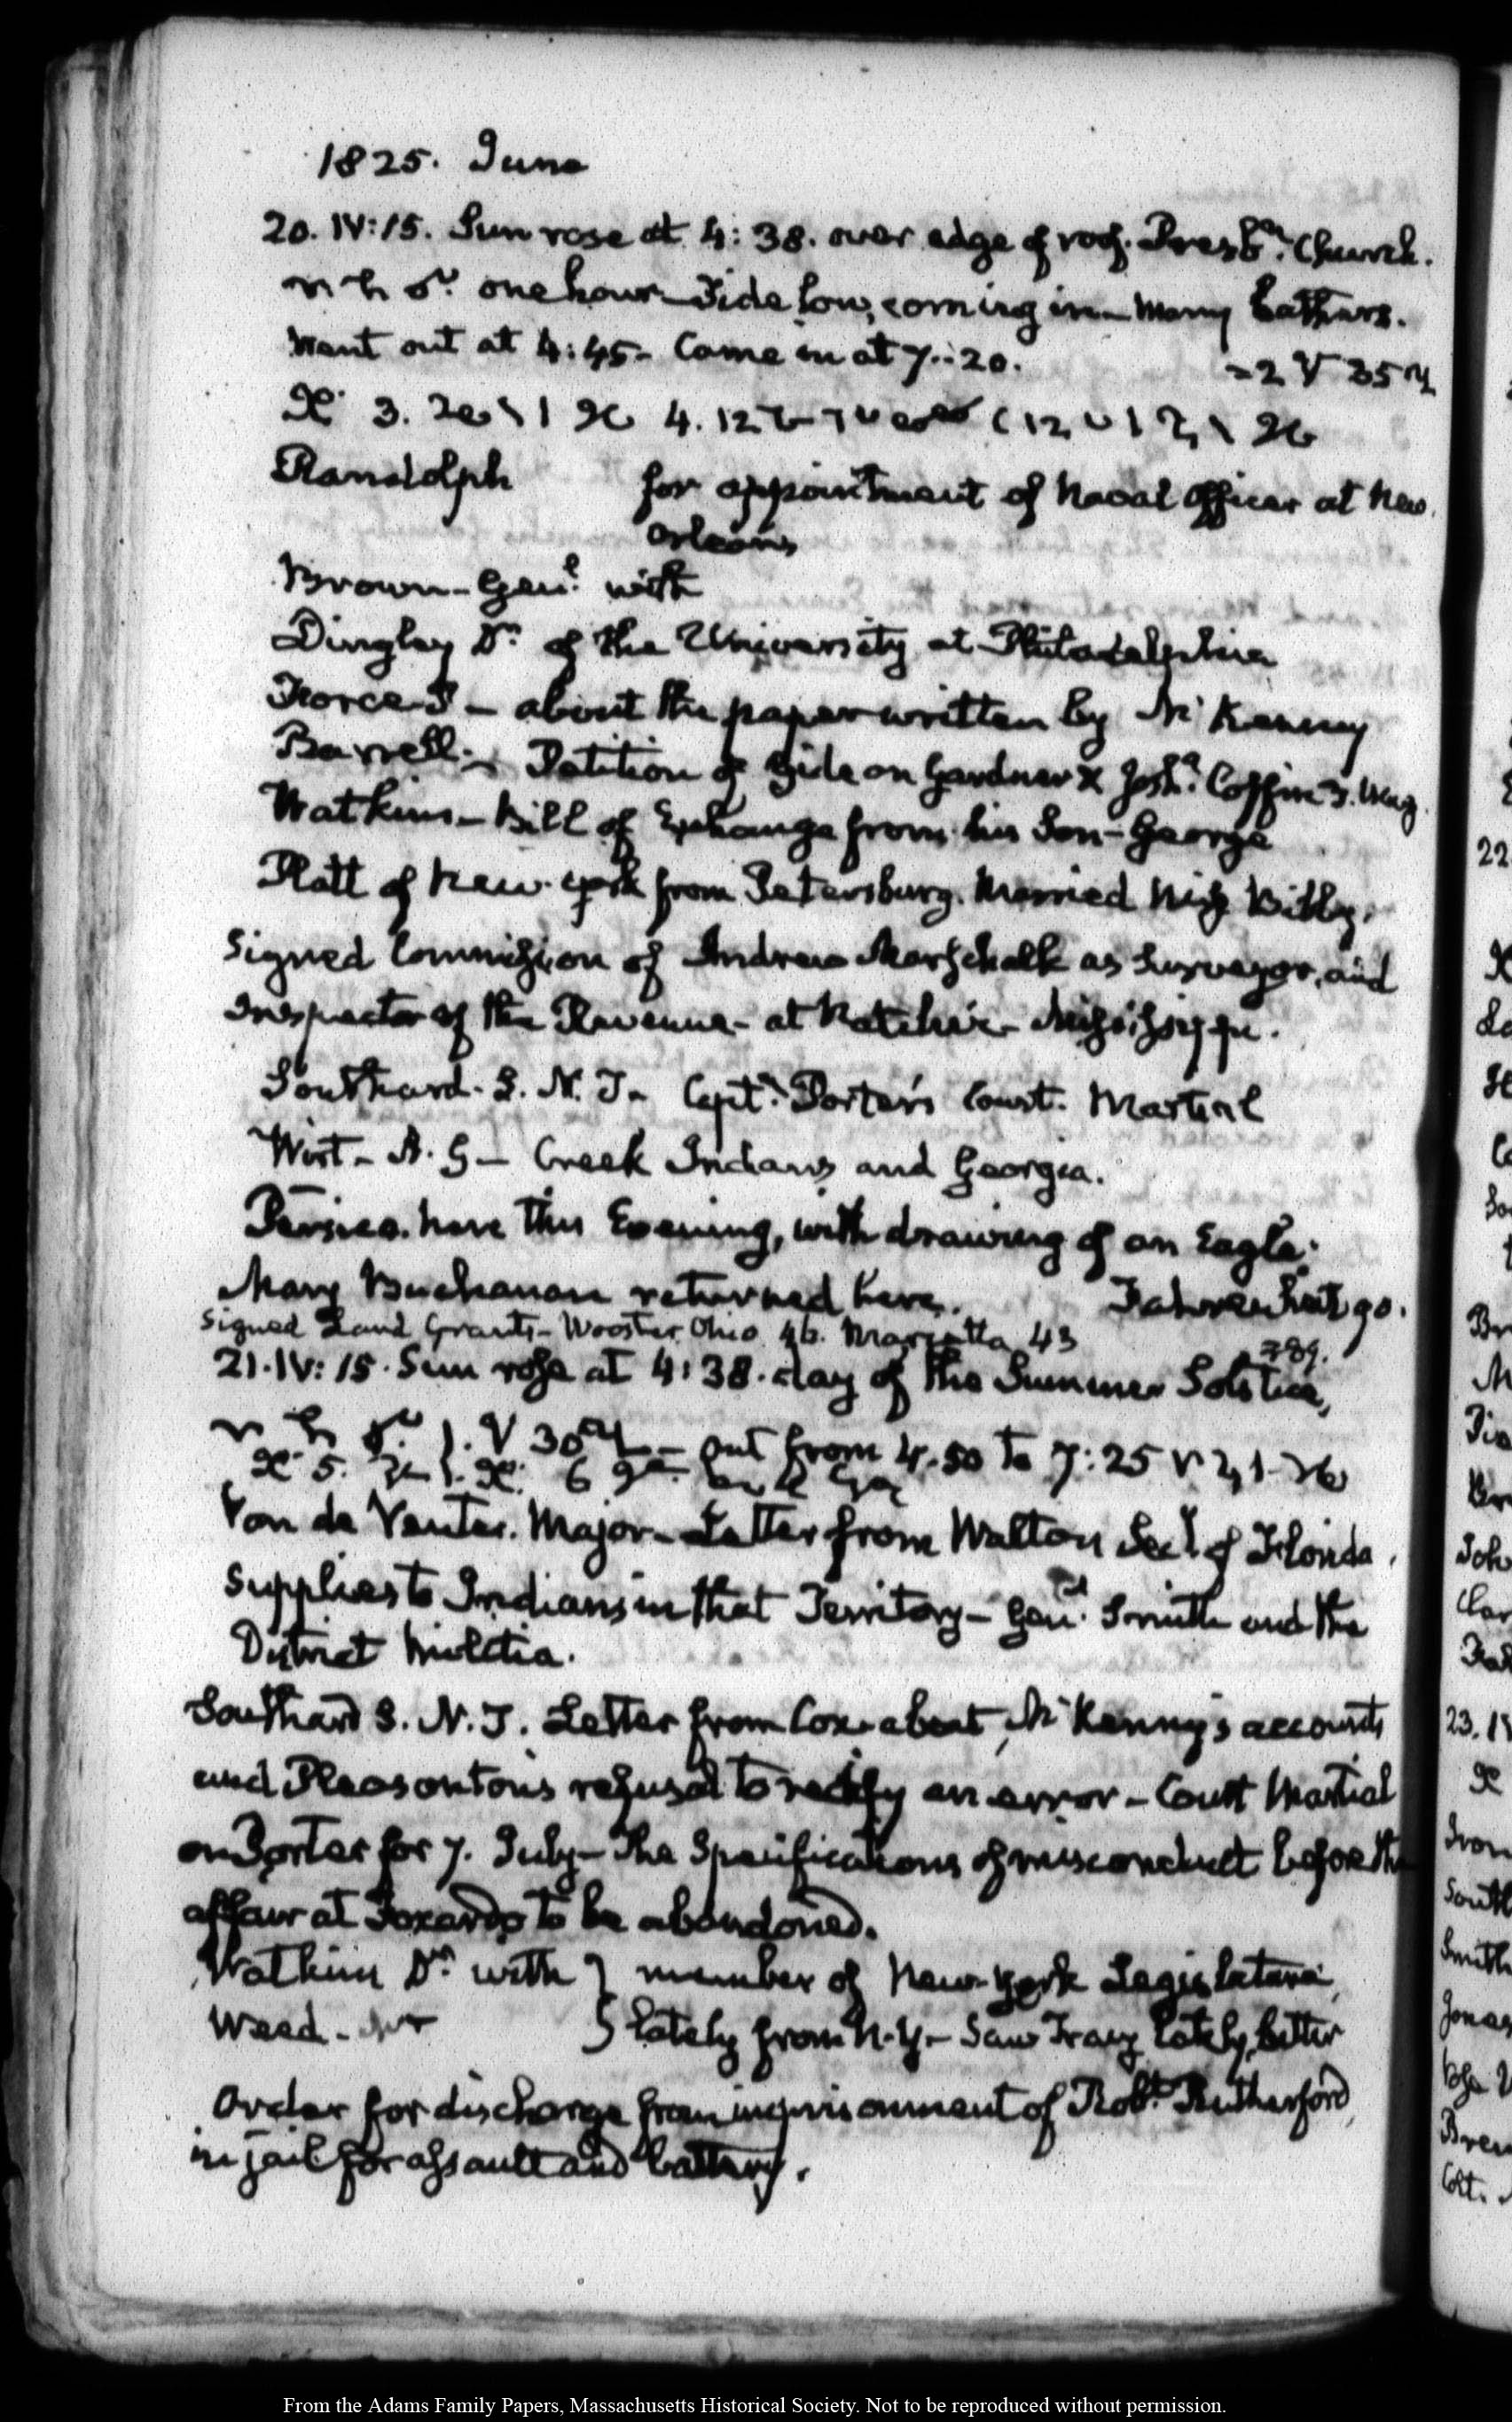 1825. June
20. IV:15. Sun rose at 4:38. over edge of roof. Presbn. Church.
one hour Tide low, coming in - Many bathers.
Went out at 4:45 - Came in at 7:20. = 2 35
3. 4. 12
Randolph for appointment of Naval Officer at New
Orleans
Brown - Genl. with
Dingley Dr. of the University at Philadelphia
Force P - about the paper written by McKenney
Barrell - Petition of Gideon Gardner & Josh. Coffin
Watkins - Bill of Exchange from his Son - George
Platt of New-York from Petersburg. Married Miss Bibby.
Signed Commission of Andrew Marschalk as Surveyor, and
Inspector of the Revenue - at Natchez - Mississippi.
Southard. S. N. - Capt. Porter's Court-Martial
Wirt - A. G - Creek Indians and Georgia.
Persico. here this Evening, with drawing of an Eagle.
Mary Buchanan returned here. Fahrenheit 90.
Signed Land Grants - Wooster Ohio 46. Marietta 43
= 89.
21. IV:15. Sun rose at 4:38. day of the Summer Solstice,
1. 30 - out from 4.50 to 7:25
5. 6
Van de Venter. Major - Letter from Walton Secy. of Florida.
Supplies to Indians in that Territory - Genl. Smith and the
District Militia.
Southard S. N. Letter from Cox about McKenny's accounts
and Pleasonton's refusal to rectify an error - Court Martial
on Porter for 7. July - The Specifications of misconduct before the
affair at Foxardo to be abandoned.
Watkins Dr. with } member of New-York Legislature
Weed - Mr } lately from N.Y. - Saw Tracy lately, better
Order for discharge from imprisonment of Robt. Rutherford
in jail for assault and battery.
22
23. IV
Smith
Jonas
Colt.
From the Adams Family Papers, Massachusetts Historical Society. Not to be reproduced without permission.